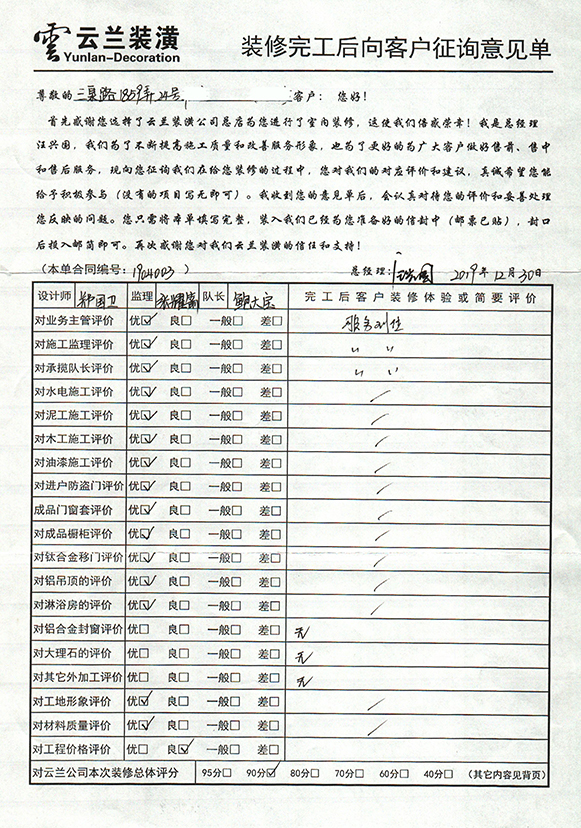 雲 云兰装潢
Yunlan-Decoration
装修完工后向客户征询意见单
尊敬的 三泉路1859弄24号 客户： 您好！
首先感谢您选择了云兰装潢公司总店为您进行了室内装修，这使我们倍感荣幸！我是总经理
汪兴国，我们为了不断提高施工质量和改善服务形象，也为了更好的为广大客户做好售前、售中
和售后服务，现向您征询我们在给您装修的过程中，您对我们的对应评价和建议，真诚希望您能
给予积极参与（没有的项目写无即可）。我收到您的意见单后，会认真对待您的评价和妥善处理
您反映的问题。您只需将本单填写完整，装入我们已经为您准备好的信封中（邮票已贴），封口
后投入邮筒即可。再次感谢您对我们云兰装潢的信任和支持！
（本单合同编号：1904003 ） 总经理： 2019年12月30日
设计师 郑国卫 监理 张耀富 队长 鲍大宝 完工后客户装修体验或简要评价
对业务主管评价 优☑ 良□ 一般□ 差□ 服务到位
对施工监理评价 优☑ 良□ 一般□ 差□ 〃 〃
对承揽队长评价 优☑ 良□ 一般□ 差□ 〃 〃
对水电施工评价 优☑ 良□ 一般□ 差□ ✓
对泥工施工评价 优☑ 良□ 一般□ 差□ ✓
对木工施工评价 优☑ 良□ 一般□ 差□ ✓
对油漆施工评价 优☑ 良□ 一般□ 差□ ✓
对进户防盗门评价 优☑ 良□ 一般□ 差□ ✓
成品门窗套评价 优☑ 良□ 一般□ 差□ ✓
对成品橱柜评价 优☑ 良□ 一般□ 差□ ✓
对钛合金移门评价 优☑ 良□ 一般□ 差□ ✓
对铝吊顶的评价 优☑ 良□ 一般□ 差□ ✓
对淋浴房的评价 优☑ 良□ 一般□ 差□ ✓
对铝合金封窗评价 优□ 良□ 一般□ 差□ 无
对大理石的评价 优□ 良□ 一般□ 差□ 无
对其它外加工评价 优□ 良□ 一般□ 差□ 无
对工地形象评价 优☑ 良□ 一般□ 差□ ✓
对材料质量评价 优☑ 良□ 一般□ 差□ ✓
对工程价格评价 优□ 良☑ 一般□ 差□
对云兰公司本次装修总体评分 95分□ 90分☑ 80分□ 70分□ 60分□ 40分□ （其它内容见背页）